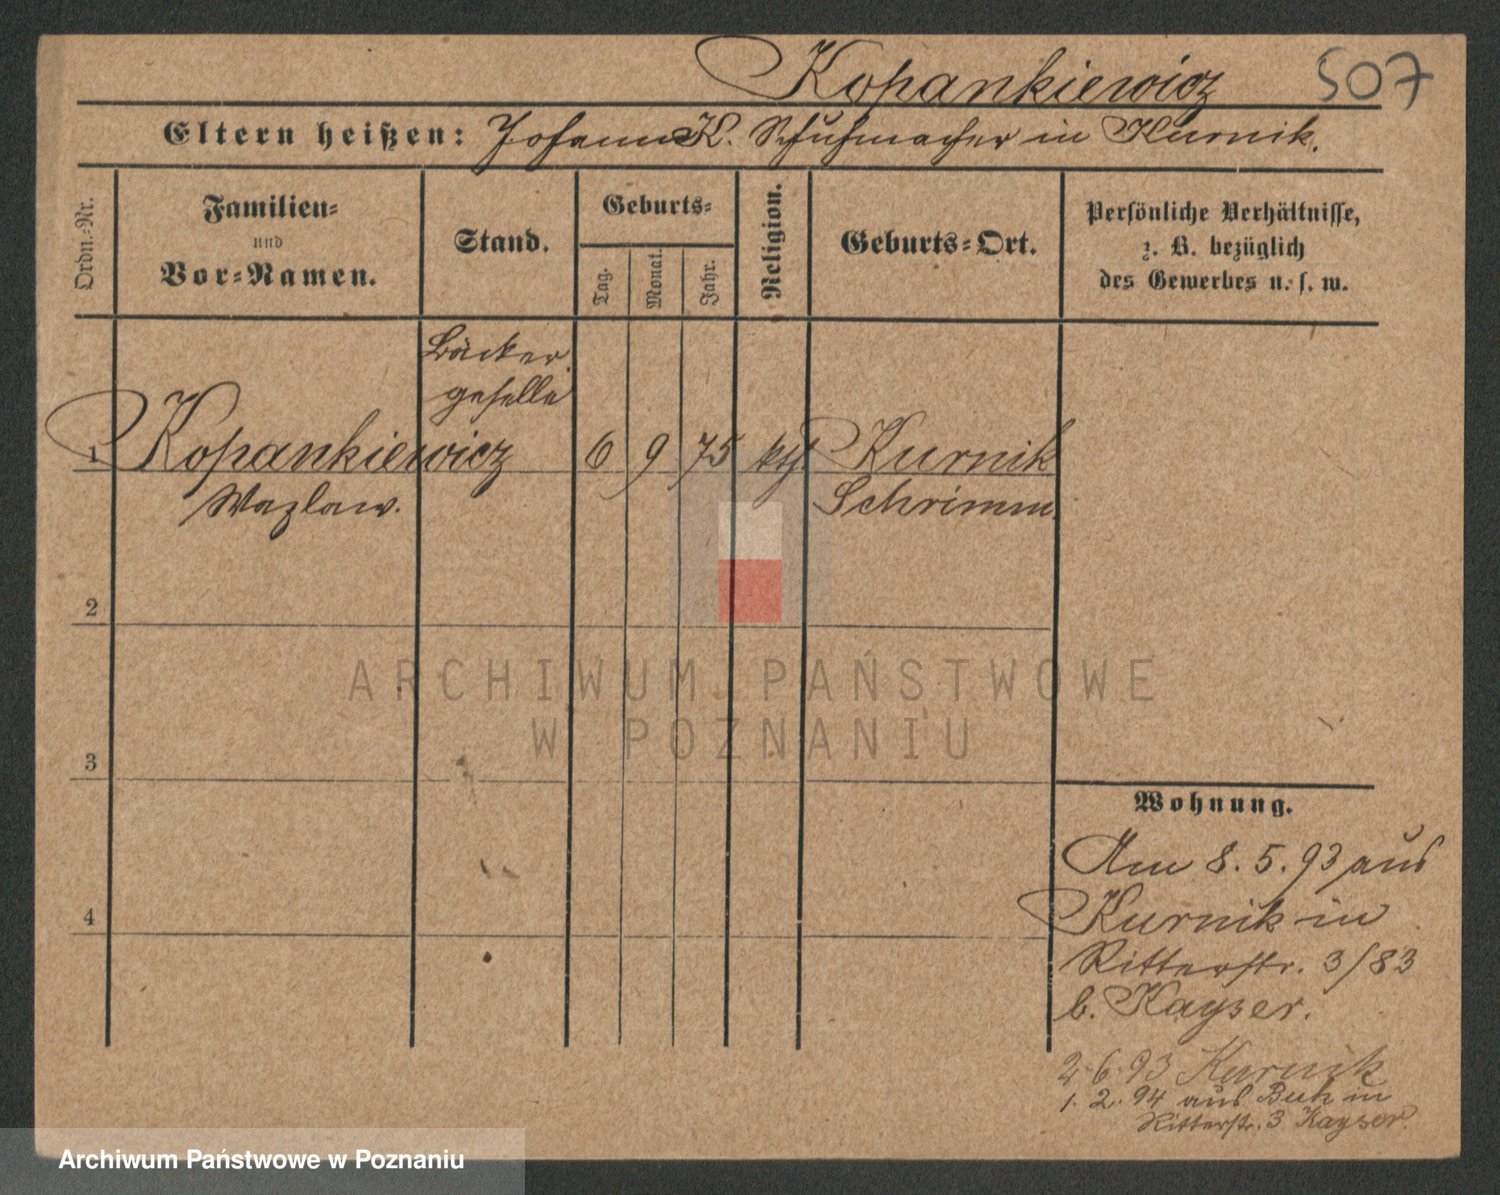 Kopankiewicz 507
Eltern heißen: Johann K. Schuhmacher in Kurnik.
Ordn.-Nr.
Familien-
und
Vor-Namen.
Stand.
Geburts-
Tag.
Monat.
Jahr.
Religion.
Geburts-Ort.
Persönliche Verhältnisse,
z. B. bezüglich
des Gewerbes u. s. w.
Bäcker
geselle
1 Kopankiewicz 6 9 75 kth Kurnik
Wazlaw. Schrimm.
2
3
4
Wohnung.
Am 8.5.93 aus
Kurnik in
Ritterstr. 3/83
b. Kayser.
2.6.93 Kurnik
1.2.94 aus Buk in
Ritterstr. 3 Kayser.
ARCHIWUM PAŃSTWOWE
W POZNANIU
Archiwum Państwowe w Poznaniu